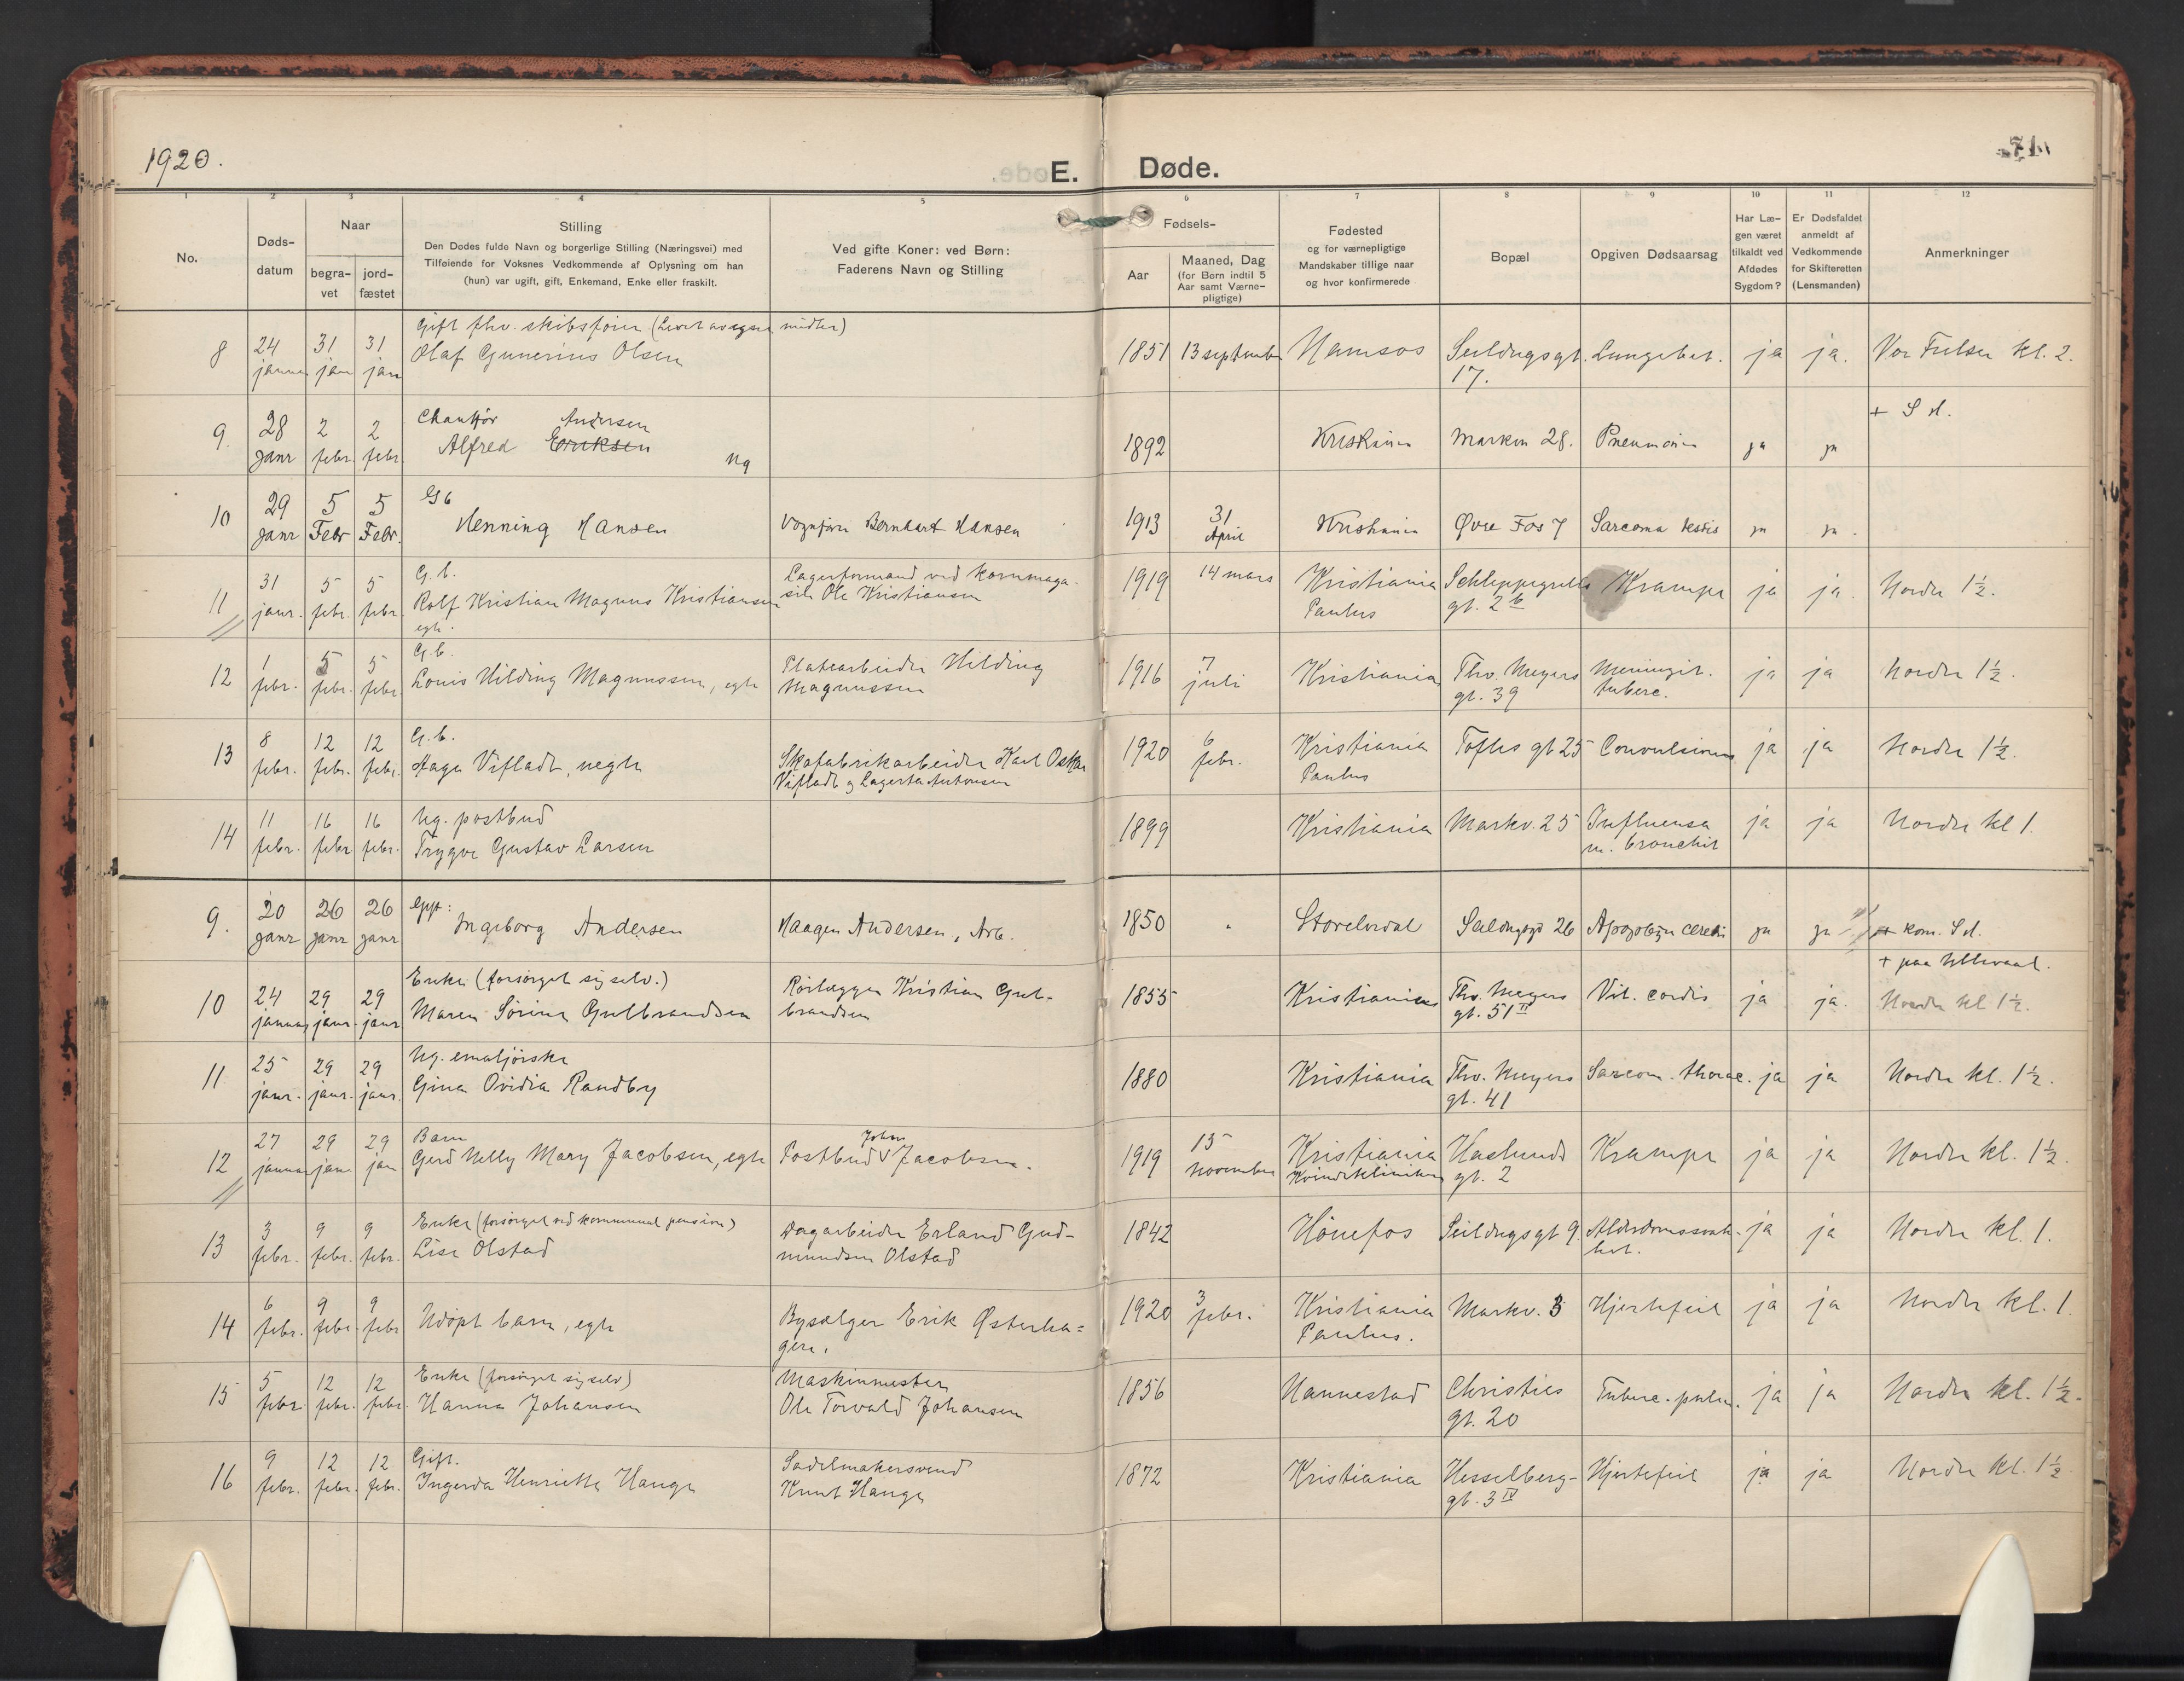 1920.
E. Døde.
71
1 2 3 4 5 6 7 8 9 10 11 12
No.
Døds-
datum
Naar
begra-
vet
jord-
fæstet
Stilling
Den Dødes fulde Navn og borgerlige Stilling (Næringsvei) med
Tilføiende for Voksnes Vedkommende af Oplysning om han
(hun) var ugift, gift, Enkemand, Enke eller fraskilt.
Ved gifte Koner: ved Børn:
Faderens Navn og Stilling
Fødsels-
Aar
Maaned, Dag
(for Børn indtil 5
Aar samt Værne-
pligtige)
Fødested
og for værnepligtige
Mandskaber tillige naar
og hvor konfirmerede
Bopæl
Opgiven Dødsaarsag
Har Læ-
gen været
tilkaldt ved
Afdødes
Sygdom?
Er Dødsfaldet
anmeldt af
Vedkommende
for Skifteretten
(Lensmanden)
Anmerkninger
Gift fhv. skibsfører (Levet av egne midler)
8 24 31 31 Olaf Gunerius Olsen 1851 13 september Namsos Seildugsgt. Lungebet. ja ja. Vor Frelser kl. 2.
januar jan jan 17.
Chauffør Andersen + S d.
9. 28 2 2 Alfred Eriksen 1892 Kristiania Markvn 28. Pneumoni ja ja
janr febr. febr. ug
G b
10 29 5 5 Henning Hansen Vognfører Bernhart Hansen 1913 31 Kristiania Øvre Fos 7 Sarcoma testis ja ja.
janr Febr Febr. April
G. b. Lagerformand ved Kornmaga-
11 31 5 5 Rolf Kristian Magnus Kristiansen sin Ole Kristiansen 1919 14 mars Kristiania Schleppegrells Krampe ja ja. Nordre 1½.
janr. febr. febr. egte. Paulus gt. 2 b
G. b.
12 1 5 5 Louis Hilding Magnussen, egte Platearbeider Hilding 1916 7 Kristiania Thv. Meyers Meningit. ja ja Nordre 1½.
febr. febr. febr Magnussen juli gt. 39 tuberc.
G. b.
13 8 12 12 Aage Vifladt, uegte Skofabrikarbeider Karl Oskar 1920 6 Kristiania Toftes gt 25 Convulsiones ja ja Nordre 1½.
febr. febr. febr. Vifladt og Lagerta Antonsen febr. Paulus
Ug. postbud
14 11 16 16 Trygve Gustav Larsen 1899 Kristiania Markv. 25 Influensa ja ja Nordre kl 1.
febr. febr febr. m. bronchit
Gift:
9. 20 26 26 Ingeborg Andersen Haagen Andersen, Arb. 1850 Storelvdal Seildugsgt 26 Apoplexia cerebri ja ja + kom. S d.
janr janr janr
Enke (forsørget sig selv.) + paa Ullevaal.
10 24 29 29 Maren Sørine Gulbrandsen Rørlægger Kristian Gul- 1855 Kristiania Thv. Meyers Vit. cordis ja ja. Nordre kl 1½.
januar janr. janr brandsen gt. 51 II
Ug. emaljørske
11 25 29 29 Gina Ovidia Randby 1880 Kristiania Thv. Meyers Sarcom. thorac. ja ja Nordre kl. 1½.
janr. janr. janr. gt. 41
Barn Johan
12 27 29 29 Gerd Nelly Mary Jacobsen, egte Postbud Jacobsen. 1919 15 Kristiania Haslunds Krampe ja ja Nordre kl. 1½.
januar jan jan november Kvindeklinikken gt. 2
Enke (forsørget ved kommunal pension)
13 3 9 9 Lise Olstad Dagarbeider Erland Gud- 1842 Hönefos Seildugsgt 9. Alderdomssvak- ja ja Nordre kl. 1.
febr. febr. febr. mundsen Olstad het.
14 6 9 9 Udöpt barn, egte Bysælger Erik Østerha= 1920 3 Kristiania Markv. 3 Hjertefeil ja ja Nordre kl. 1.
febr. febr. febr gen. febr. Paulus.
Enke (forsørget sig selv) Maskinmester
15 5 12 12 Hanna Johansen Ole Torvald Johansen 1856 Hannestad Christies Tuberc. pulm. ja ja Nordre kl. 1½.
febr. febr. febr. gt. 20
Gift. Sadelmakersvend
16 9 12 12 Ingerda Henriette Hauge Knut Hauge 1872 Kristiania Hesselberg- Hjertefeil ja ja Nordre kl. 1½.
febr. febr. febr. gt. 3 IV